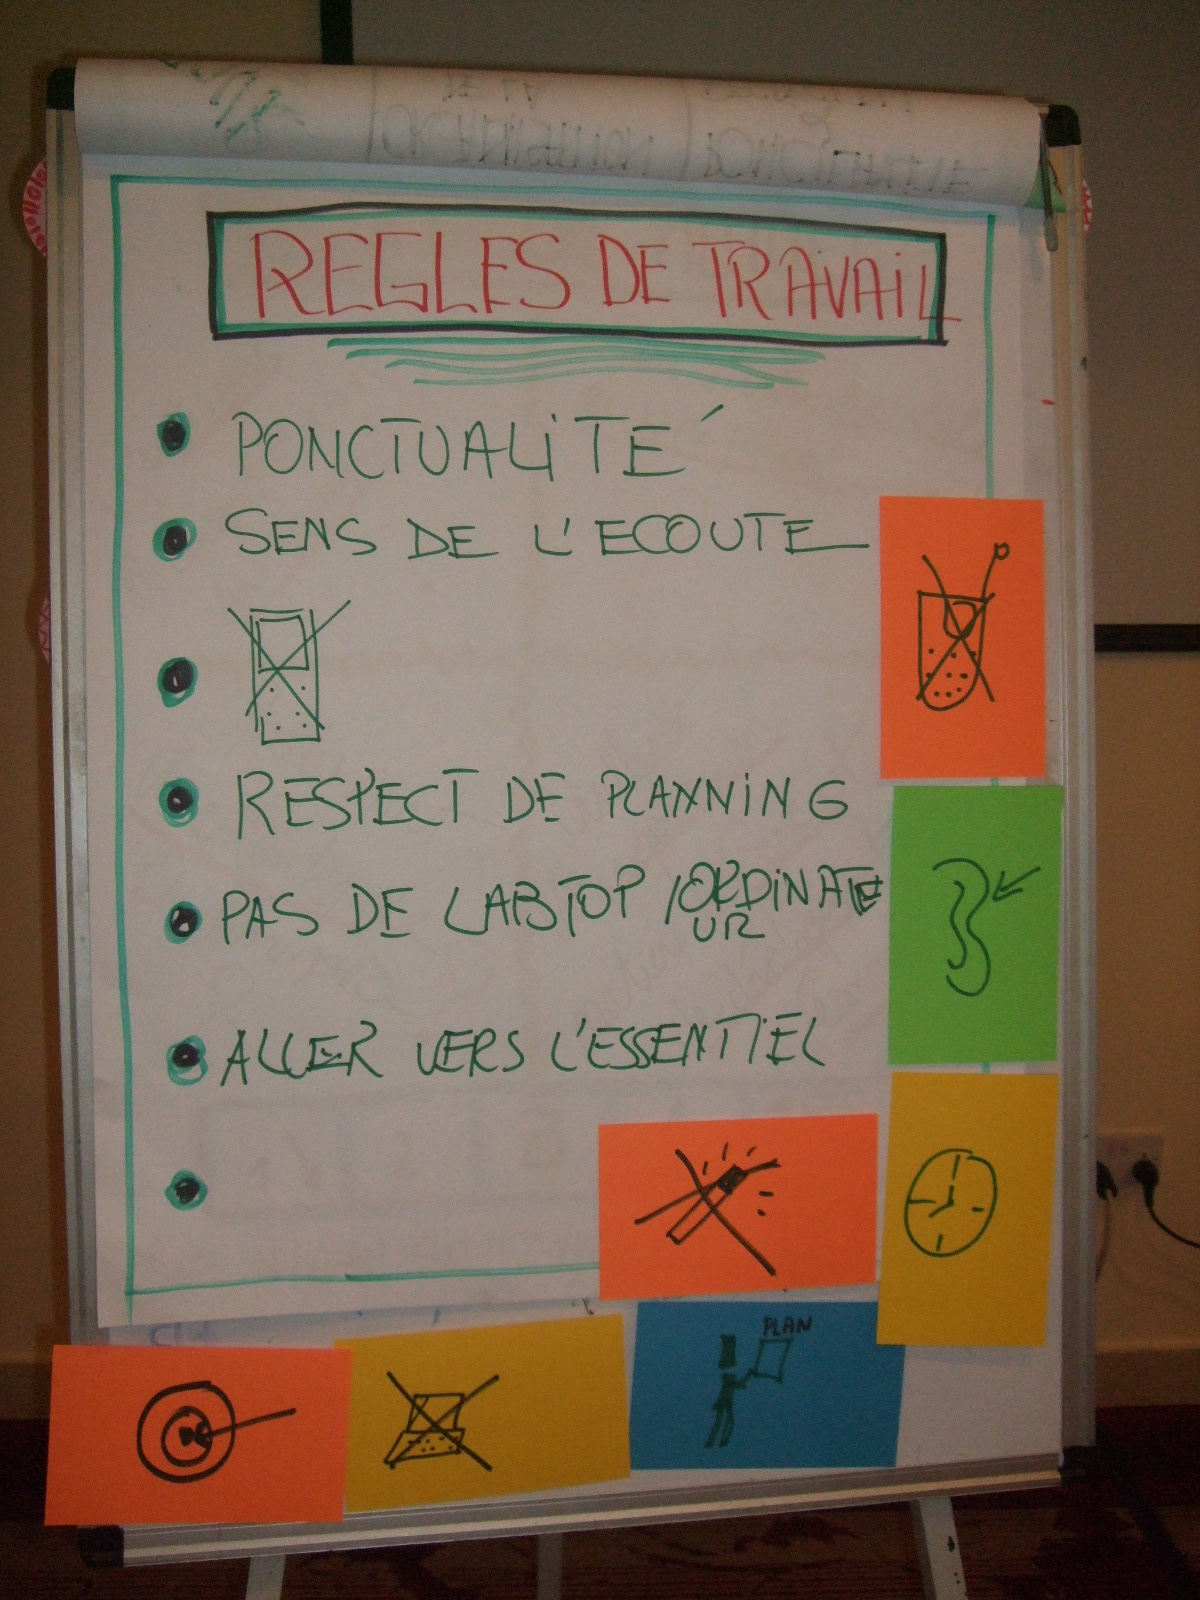 REGLES DE TRAVAIL
PONCTUALITÉ
SENS DE L'ECOUTE
RESPECT DE PLANNING
PAS DE LABTOP /ORDINATE
UR
ALLER VERS L'ESSENTIEL
PLAN